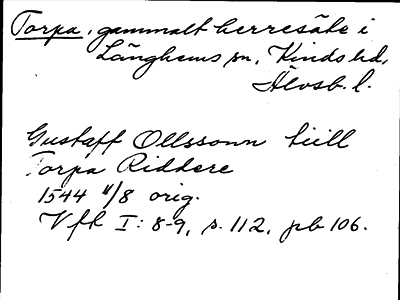 Torpa, gammalt herresäte i
Länghems sn, Kinds hd,
Älvsb. l.
Gustaff Ollssonn tiill
Torpa Riddere
1544 11/8 orig.
Vfk I: 8-9, s. 112, pb 106.